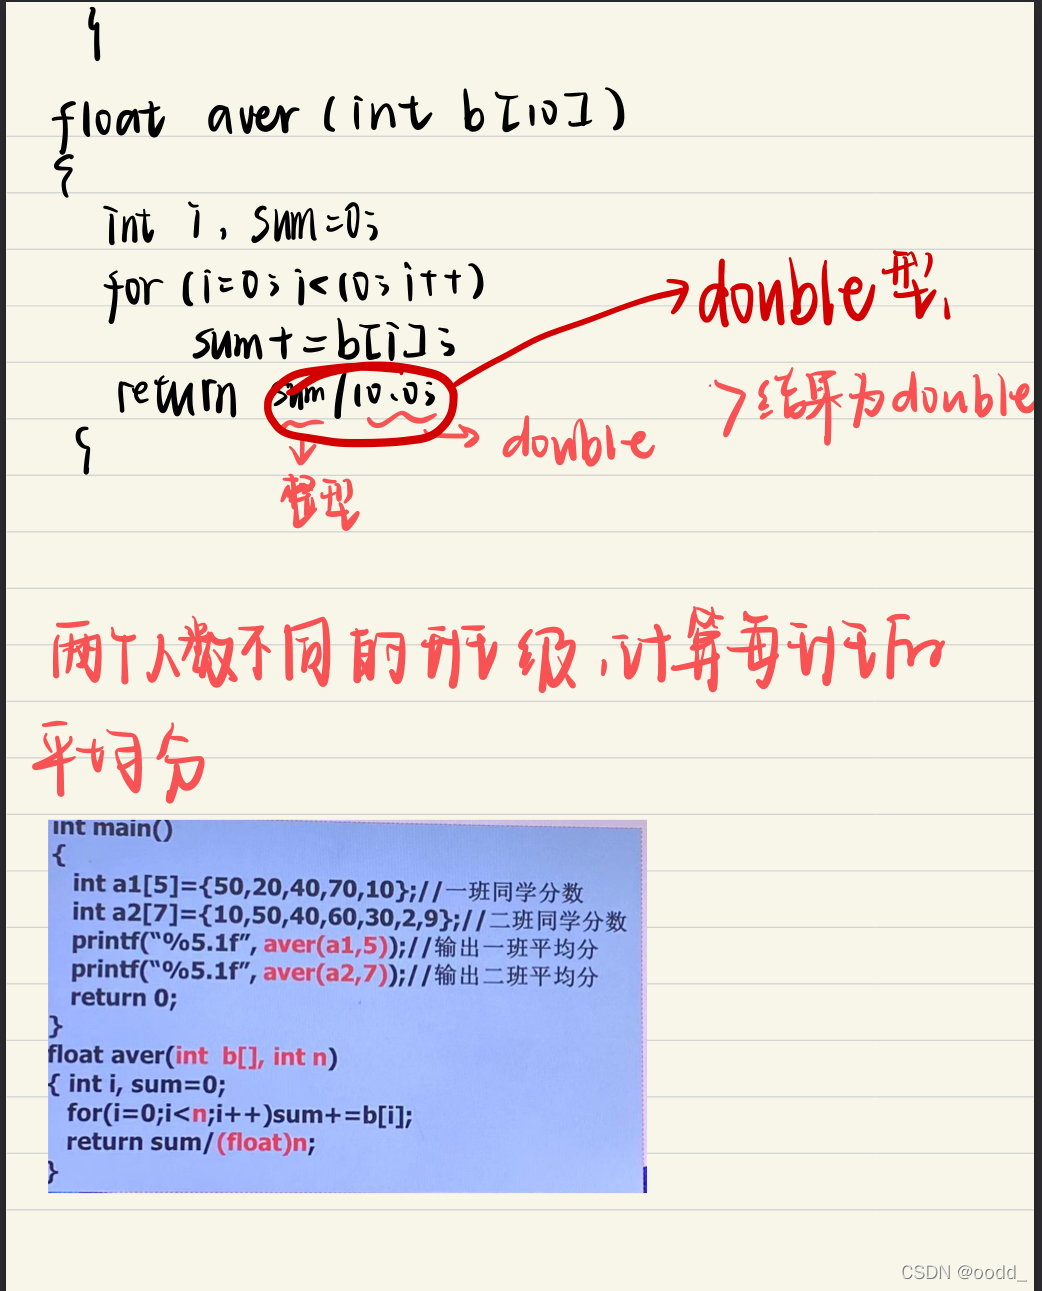 }
float aver (int b[10])
{
int i, sum=0;
for (i=0; i<10; i++)
sum+=b[i];
return sum/10.0;
}
double型,
>结果为double
double
整型
两个人数不同的班级,计算每班的
平均分
int main()
{
int a1[5]={50,20,40,70,10};//一班同学分数
int a2[7]={10,50,40,60,30,2,9};//二班同学分数
printf(“%5.1f”, aver(a1,5));//输出一班平均分
printf(“%5.1f”, aver(a2,7));//输出二班平均分
return 0;
}
float aver(int b[], int n)
{ int i, sum=0;
for(i=0;i<n;i++)sum+=b[i];
return sum/(float)n;
}
CSDN @oodd_